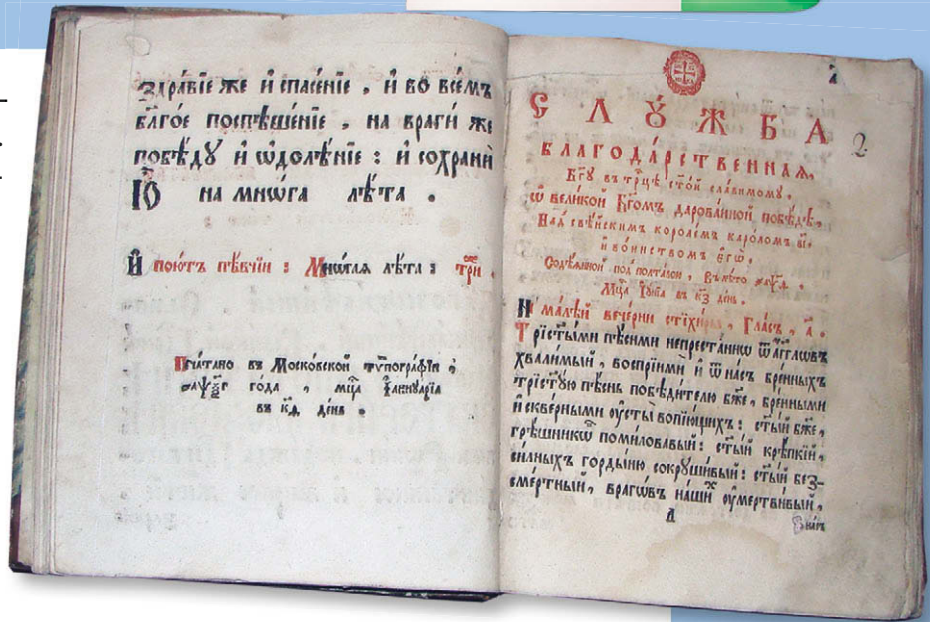 здра́вїе же и҆ спасе́нїе , и҆ во все́мъ
бл҃го́е поспѣше́нїе , на врагѝ же
побѣ́дꙋ и҆ ѡ҆долѣ́нїе : и҆ сохранѝ
на мнѡ́га лѣ́та .
И҆ пою́тъ пѣвчїи : Мнѡ́гая лѣ́та :
Печа́тано въ Моско́вской тѷпогра́фїи ,
го́да , мц҃а і҆аннꙋа́рїа
въ к҃д де́нь .
СЛꙋ́ЖБА
2
БЛАГОДА́РСТВЕННАЯ,
Бг҃ꙋ въ трⷪ҇цѣ ст҃о́й сла́вимомꙋ ,
ѡ҆ вели́кой бг҃омъ дарова́нной побѣ́дѣ ,
Над̾ свѣ́йскимъ короле́мъ ка́роломъ в҃і.
и҆ во́инствомъ є҆гѡ̀ ,
Содѣ́янной под̾ полта́вой , въ лѣ́то ҂аѱ҃ѳ ,
Мц҃а і҆ꙋ́нїа въ к҃з де́нь .
На ма́лѣй вече́рни стїхи́ры , Гла́съ , а҃ .
Трист҃ы́ми пѣ́сньми непреста́ннѡ ѿ а҆́гг҃лѡвъ
хвали́мый , воспрїимѝ и҆ ѿ на́съ бре́нныхъ
трист҃ꙋ́ю пѣ́снь побѣди́телю бж҃е , бре́нными
и҆ скве́рными ᲂу҆сты̀ вопїю́щихъ : ст҃ы́й бж҃е ,
грѣ́шникѡ помиловавый : ст҃ы́й крѣ́пкїй ,
си́лныхъ горды́ню сокрꙋши́вый : ст҃ы́й без-
сме́ртный , врагѡ́въ на́ши ᲂу҆мертви́вый ,